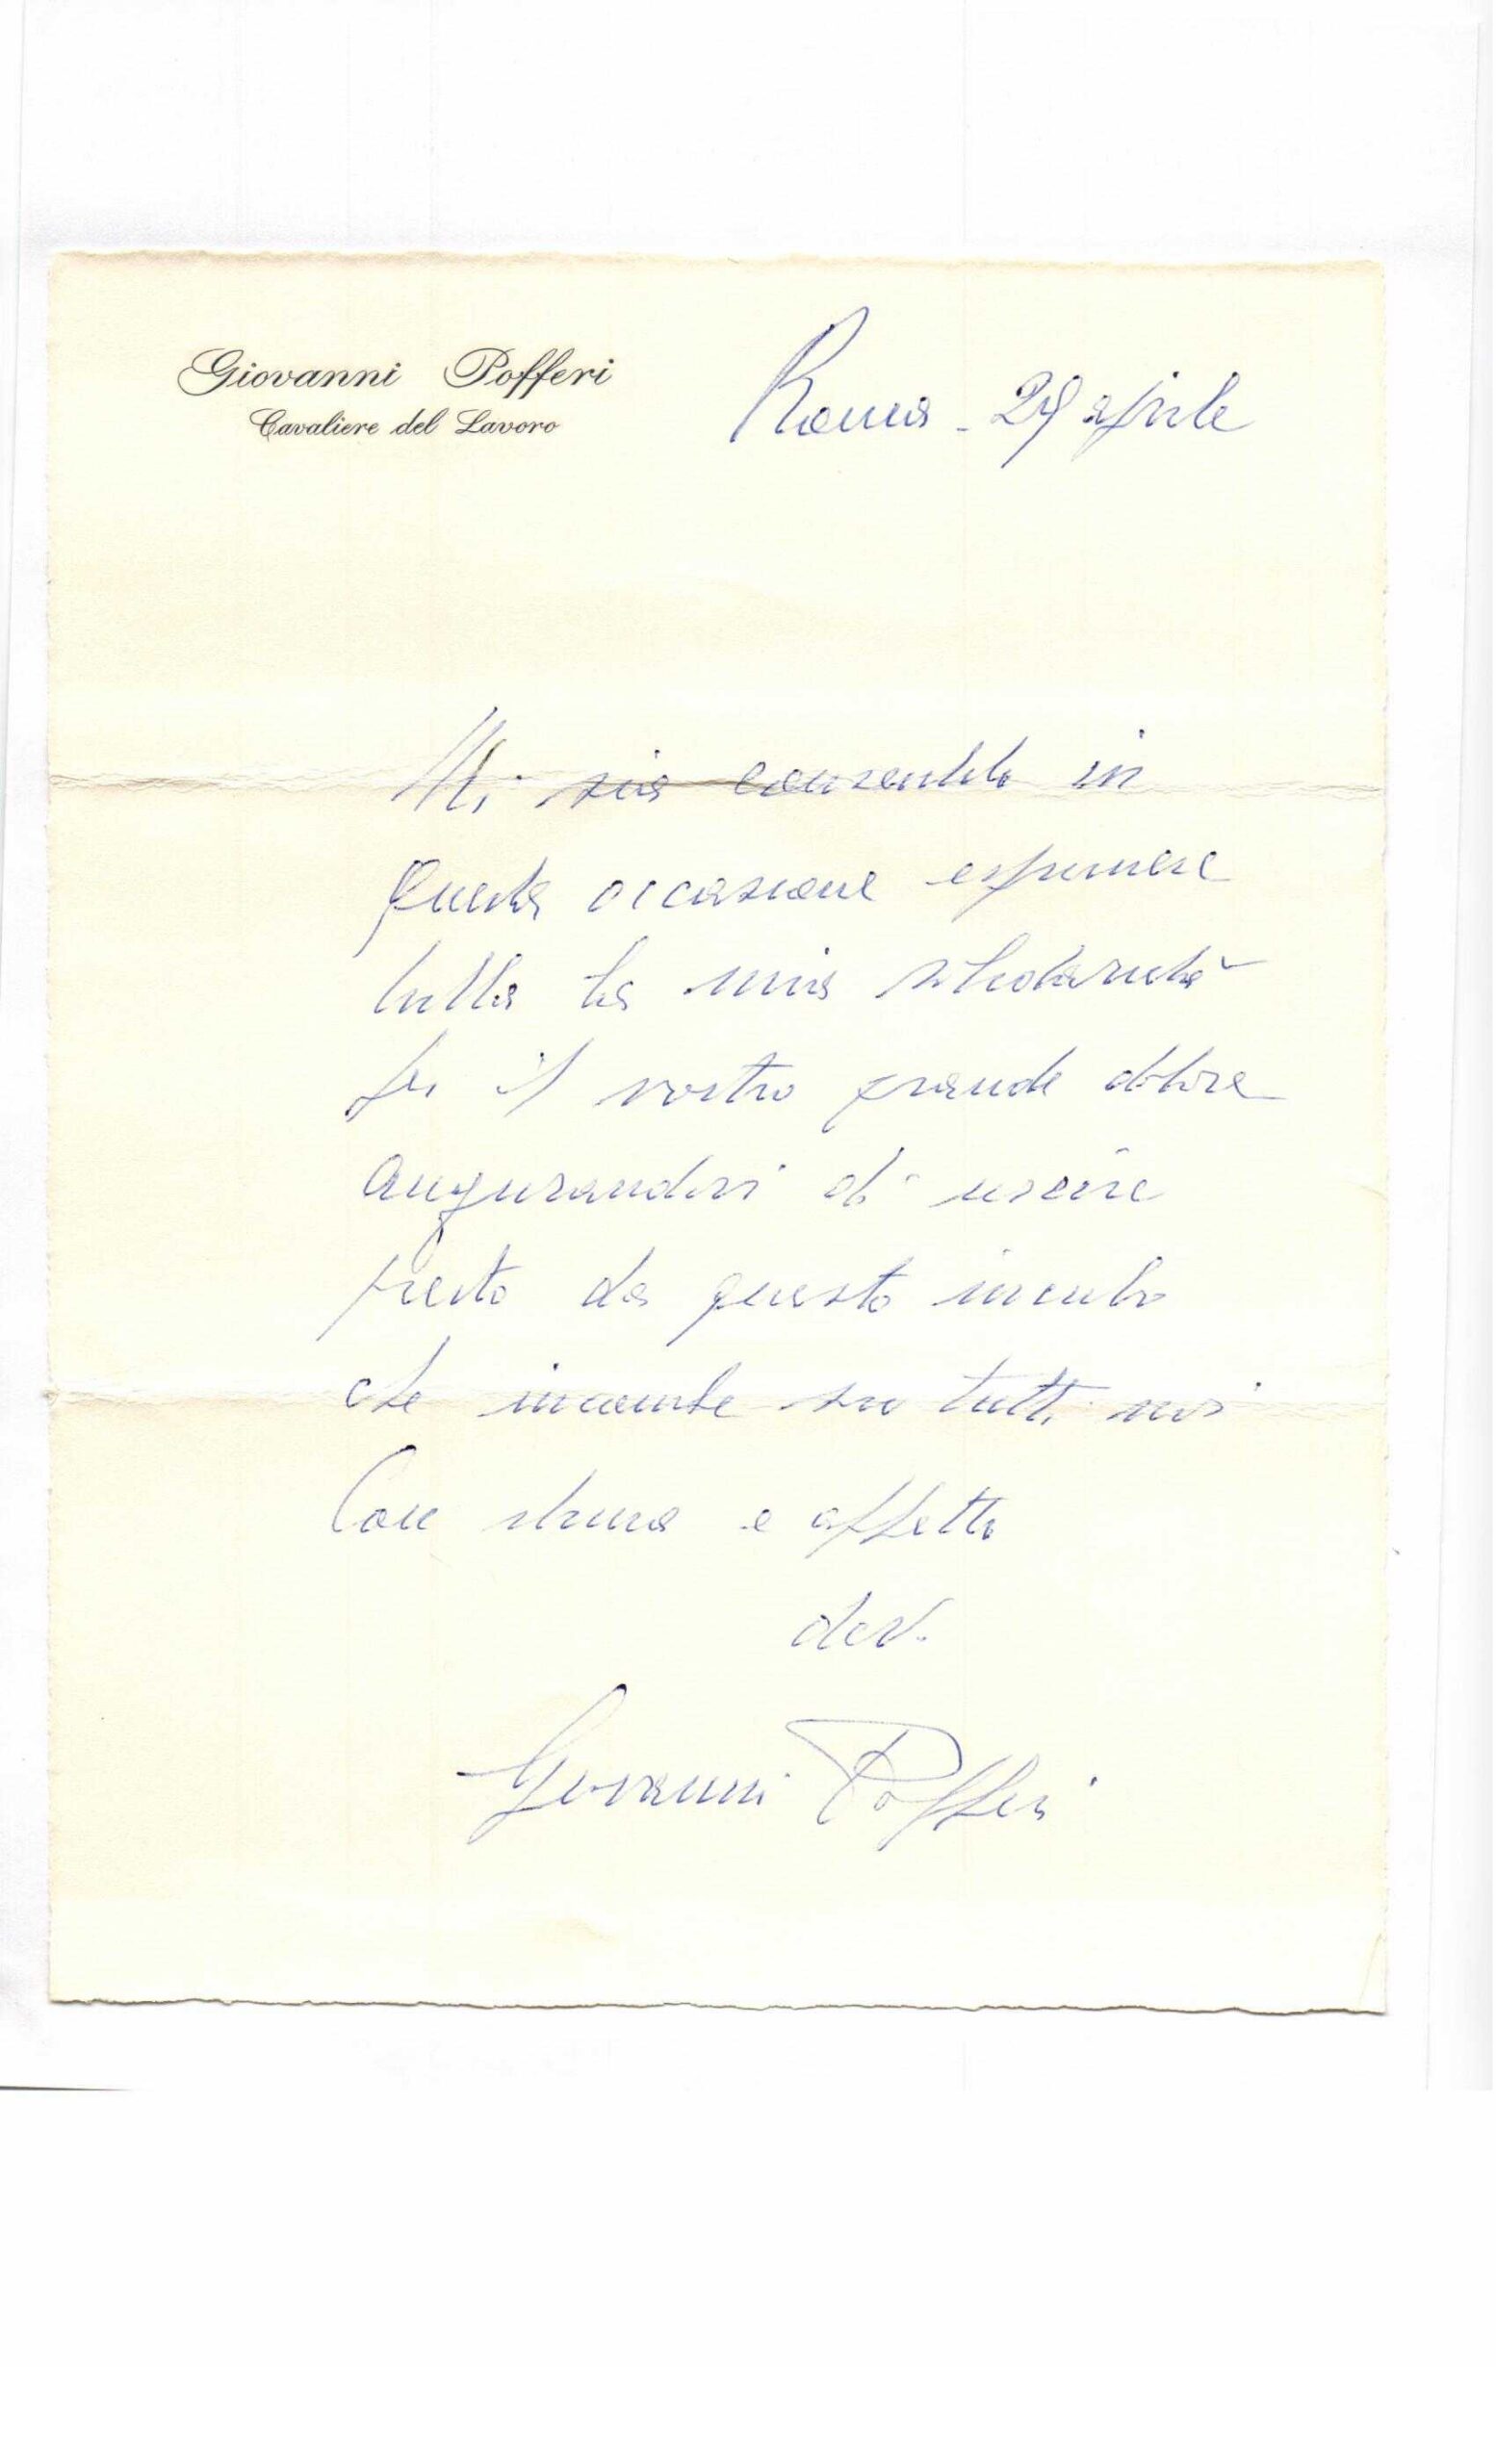 Giovanni Pofferi
Cavaliere del Lavoro
Roma - 29 aprile
Mi sia consentito in
questa occasione esprimere
tutta la mia solidarietà
per il vostro grande dolore
augurandovi di uscire
presto da questo incubo
che incombe su tutti noi
Con stima e affetto
dev.
Giovanni Pofferi